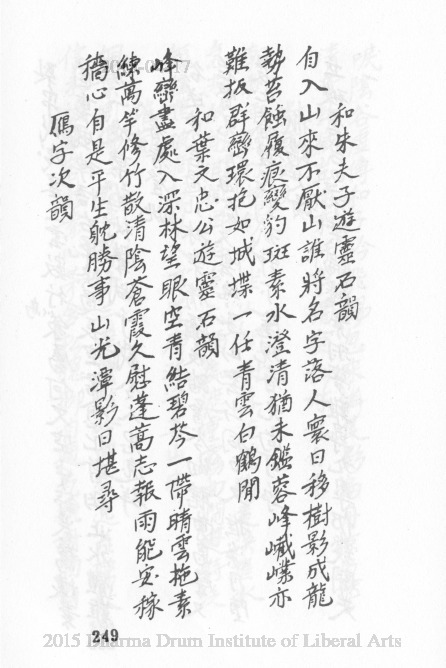 和朱夫子遊靈石韻
自入山來不厭山誰將名字落人寰日移樹影成龍
勢苔蝕履痕變豹斑素水澄清猶未鑑蓉峰嶻嶪亦
難扳群巒環抱如城堞一任青雲白鶴閒
和葉文忠公遊靈石韻
峰巒盡處入深林望眼空青結碧岑一帶晴雲拖素
練萬竿修竹散清陰蒼霞久慰蓬蒿志報雨能安稼
穡心自是平生躭勝事山光潭影日堪尋
鴈字次韻
249
2015 Dharma Drum Institute of Liberal Arts